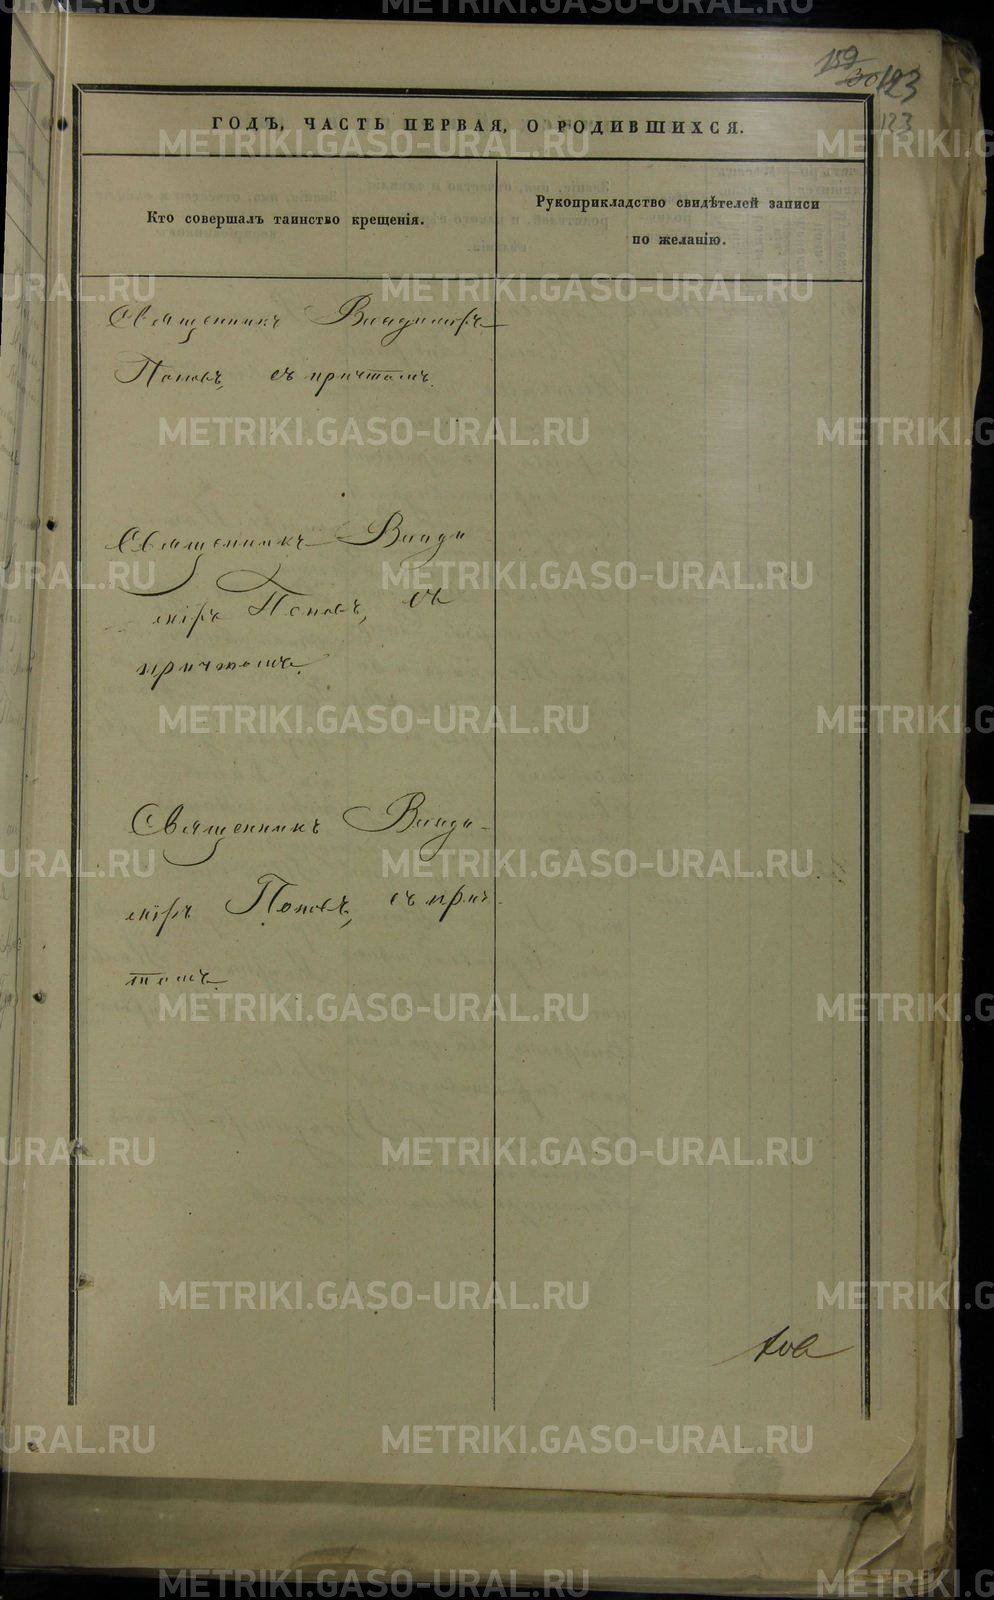 159
30 123
123
ГОДЪ, ЧАСТЬ ПЕРВАЯ, О РОДИВШИХСЯ.
Кто совершалъ таинство крещенія.
Рукоприкладство свидѣтелей записи
по желанію.
Священникъ Владиміръ
Поповъ, съ причтомъ.
Священникъ Влади
міръ Поповъ, съ
причтомъ.
Священникъ Влади-
міръ Поповъ, съ прич-
томъ.
METRIKI.GASO-URAL.RU